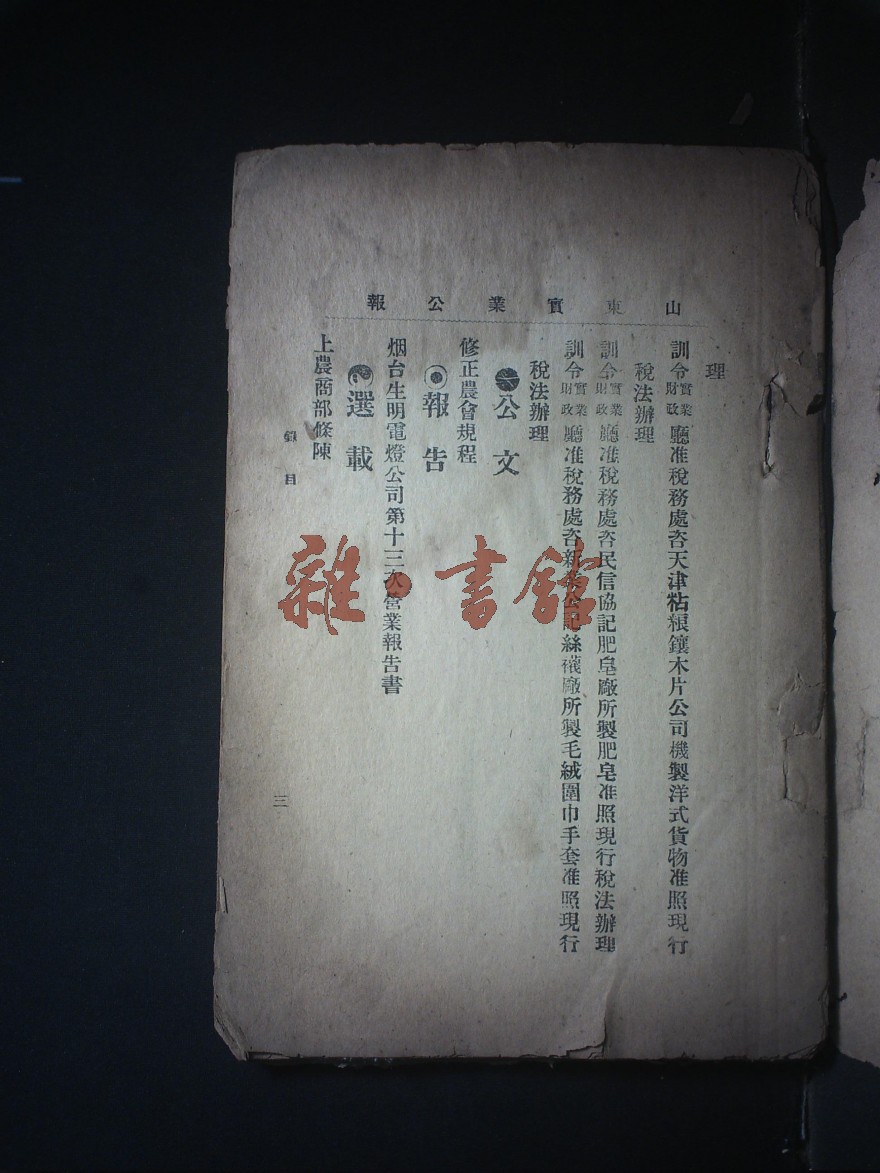 山東實業公報
理
訓令實業財政廳准稅務處咨天津粘根鑲木片公司機製洋式貨物准照現行
稅法辦理
訓令實業財政廳准稅務處咨民信協記肥皂廠所製肥皂准照現行稅法辦理
訓令實業財政廳准稅務處咨新 公記絲襪廠所製毛絨圍巾手套准照現行
稅法辦理
公文
修正農會規程
報告
烟台生明電燈公司第十三次營業報告書
選載
上農商部條陳
目錄
三
雜·書館